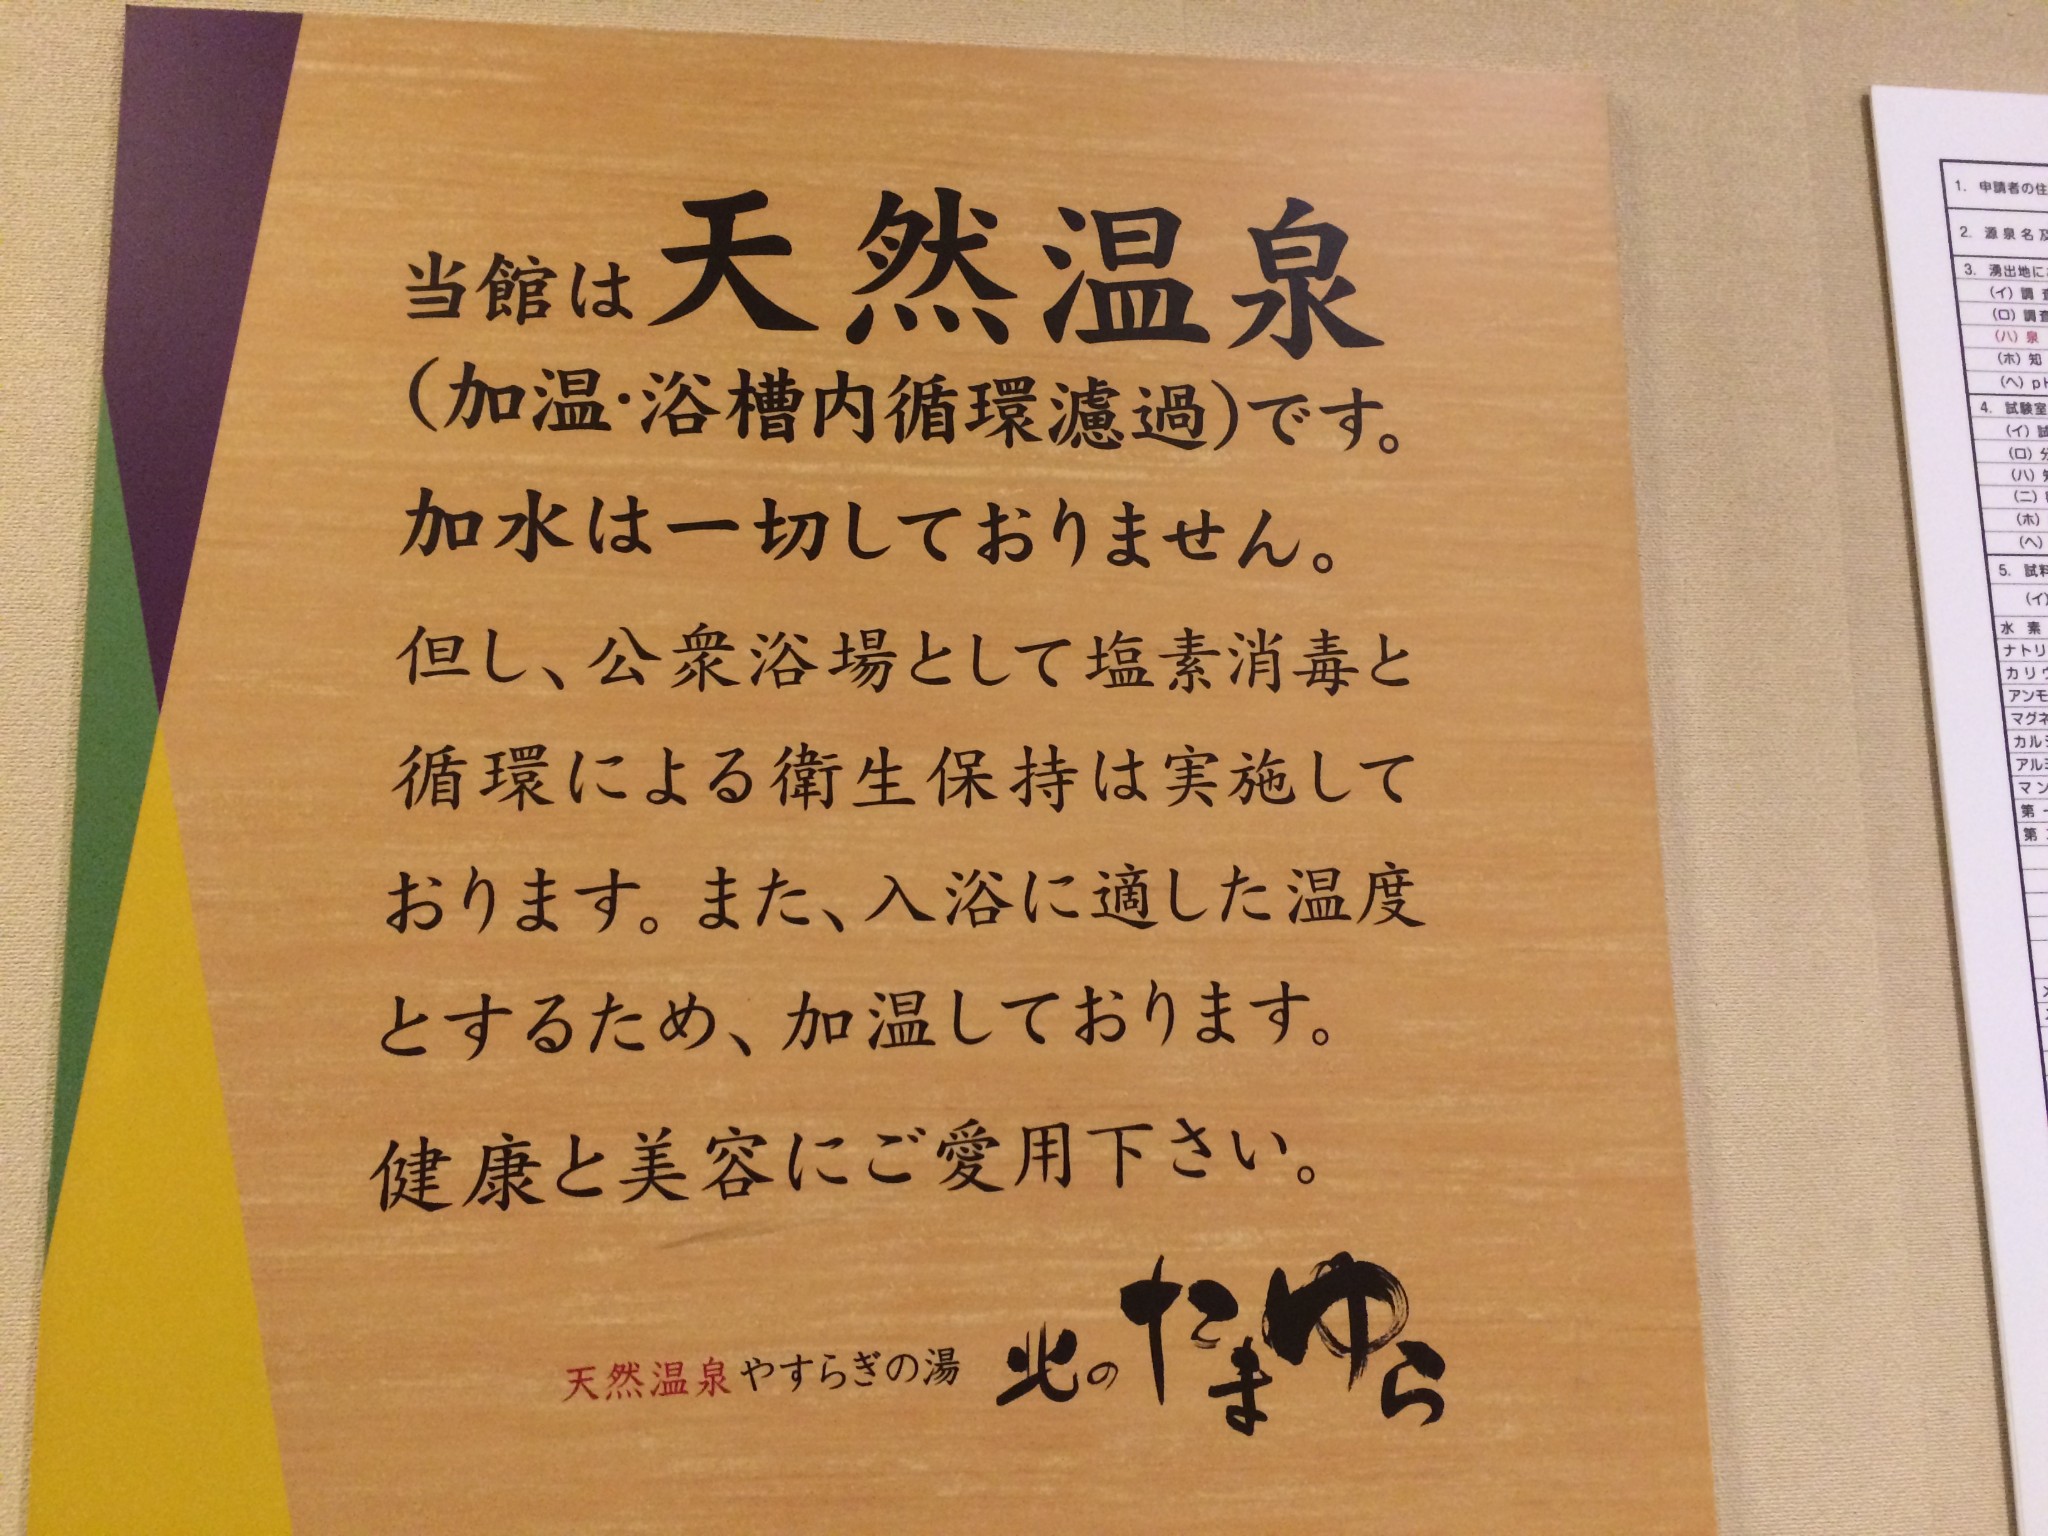 当館は天然温泉
(加温・浴槽内循環濾過)です。
加水は一切しておりません。
但し、公衆浴場として塩素消毒と
循環による衛生保持は実施して
おります。また、入浴に適した温度
とするため、加温しております。
健康と美容にご愛用下さい。
天然温泉やすらぎの湯 北のたまゆら
1. 申請者の住
2. 源泉名及
3. 湧出地に
(イ) 調査
(ロ) 調査
(ハ) 泉
(ホ) 知
(ヘ) pH
4. 試験室
(イ) 試
(ロ) 分
(ハ) 知
(ニ)
(ホ)
(ヘ)
5. 試料
(イ)
水素
ナトリ
カリウ
アンモ
マグネ
カルシ
アルミ
マン
第一
第